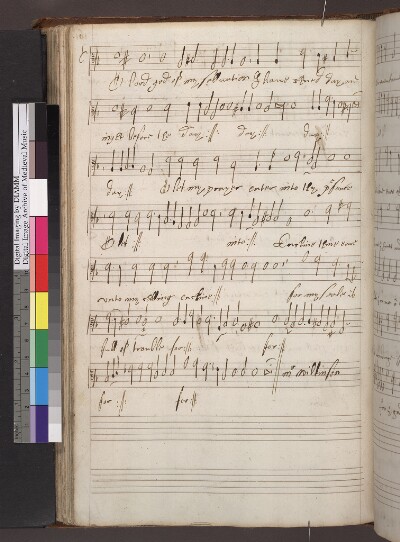 O lord god of my salvation I have cried day and
night before thee day :||: day :||: day :||:
day :||: O let my prayer enter into thy
O let :||: into :||: Encline thine eare
unto my calling encline :||: for my soule is
full of trouble for :||: for :||:
mr wilkinson
for :||: for :||:
Digital Imaging by DIAMM
Digital Image Archive of Medieval Music